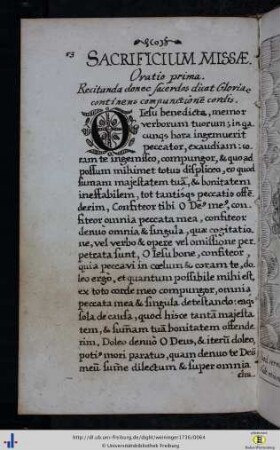 63
SACRIFICIUM MISSÆ.
Oratio prima.
Recitanda donec sacerdos dicat Gloria:
continens compunctionē cordis.
O Iesu benedicte, memor
verborum tuorum; in qa
cunqȝ hora ingemuerit
peccator, exaudiam: co
ram te ingemisco, compungor, & quo ad
possum mihimet totus displiceo, eo quod
summam majestatem tuā, & bonitatem
ineffabilem, tot tantisqȝ peccatis offē
derim, Confiteor tibi O Deꝰ meꝰ, con
fiteor omnia peccata mea, confiteor
denuo omnia & singula, quæ cogitatio
ne, vel verbo & opere vel omissione per
petrata sunt, O Iesu bone, confiteor,
quia peccavi in cœlum & coram te, do
leo ergo, et quantum possibile mihi est
ex toto corde meo compungor, omnia
peccata mea & singula detestando: eaqȝ
sola de causa, quod hisce tantā majesta
tem, & sum̄am tuā bonitatem offende
rim, Doleo denuo O Deus, & iterū doleo,
potiꝰ mori paratus, quam denuo te Deū
meū sum̄e dilectum & super omnia
cha-
http://dl.ub.uni-freiburg.de/diglit/weininger1736/0064
© Universitätsbibliothek Freiburg